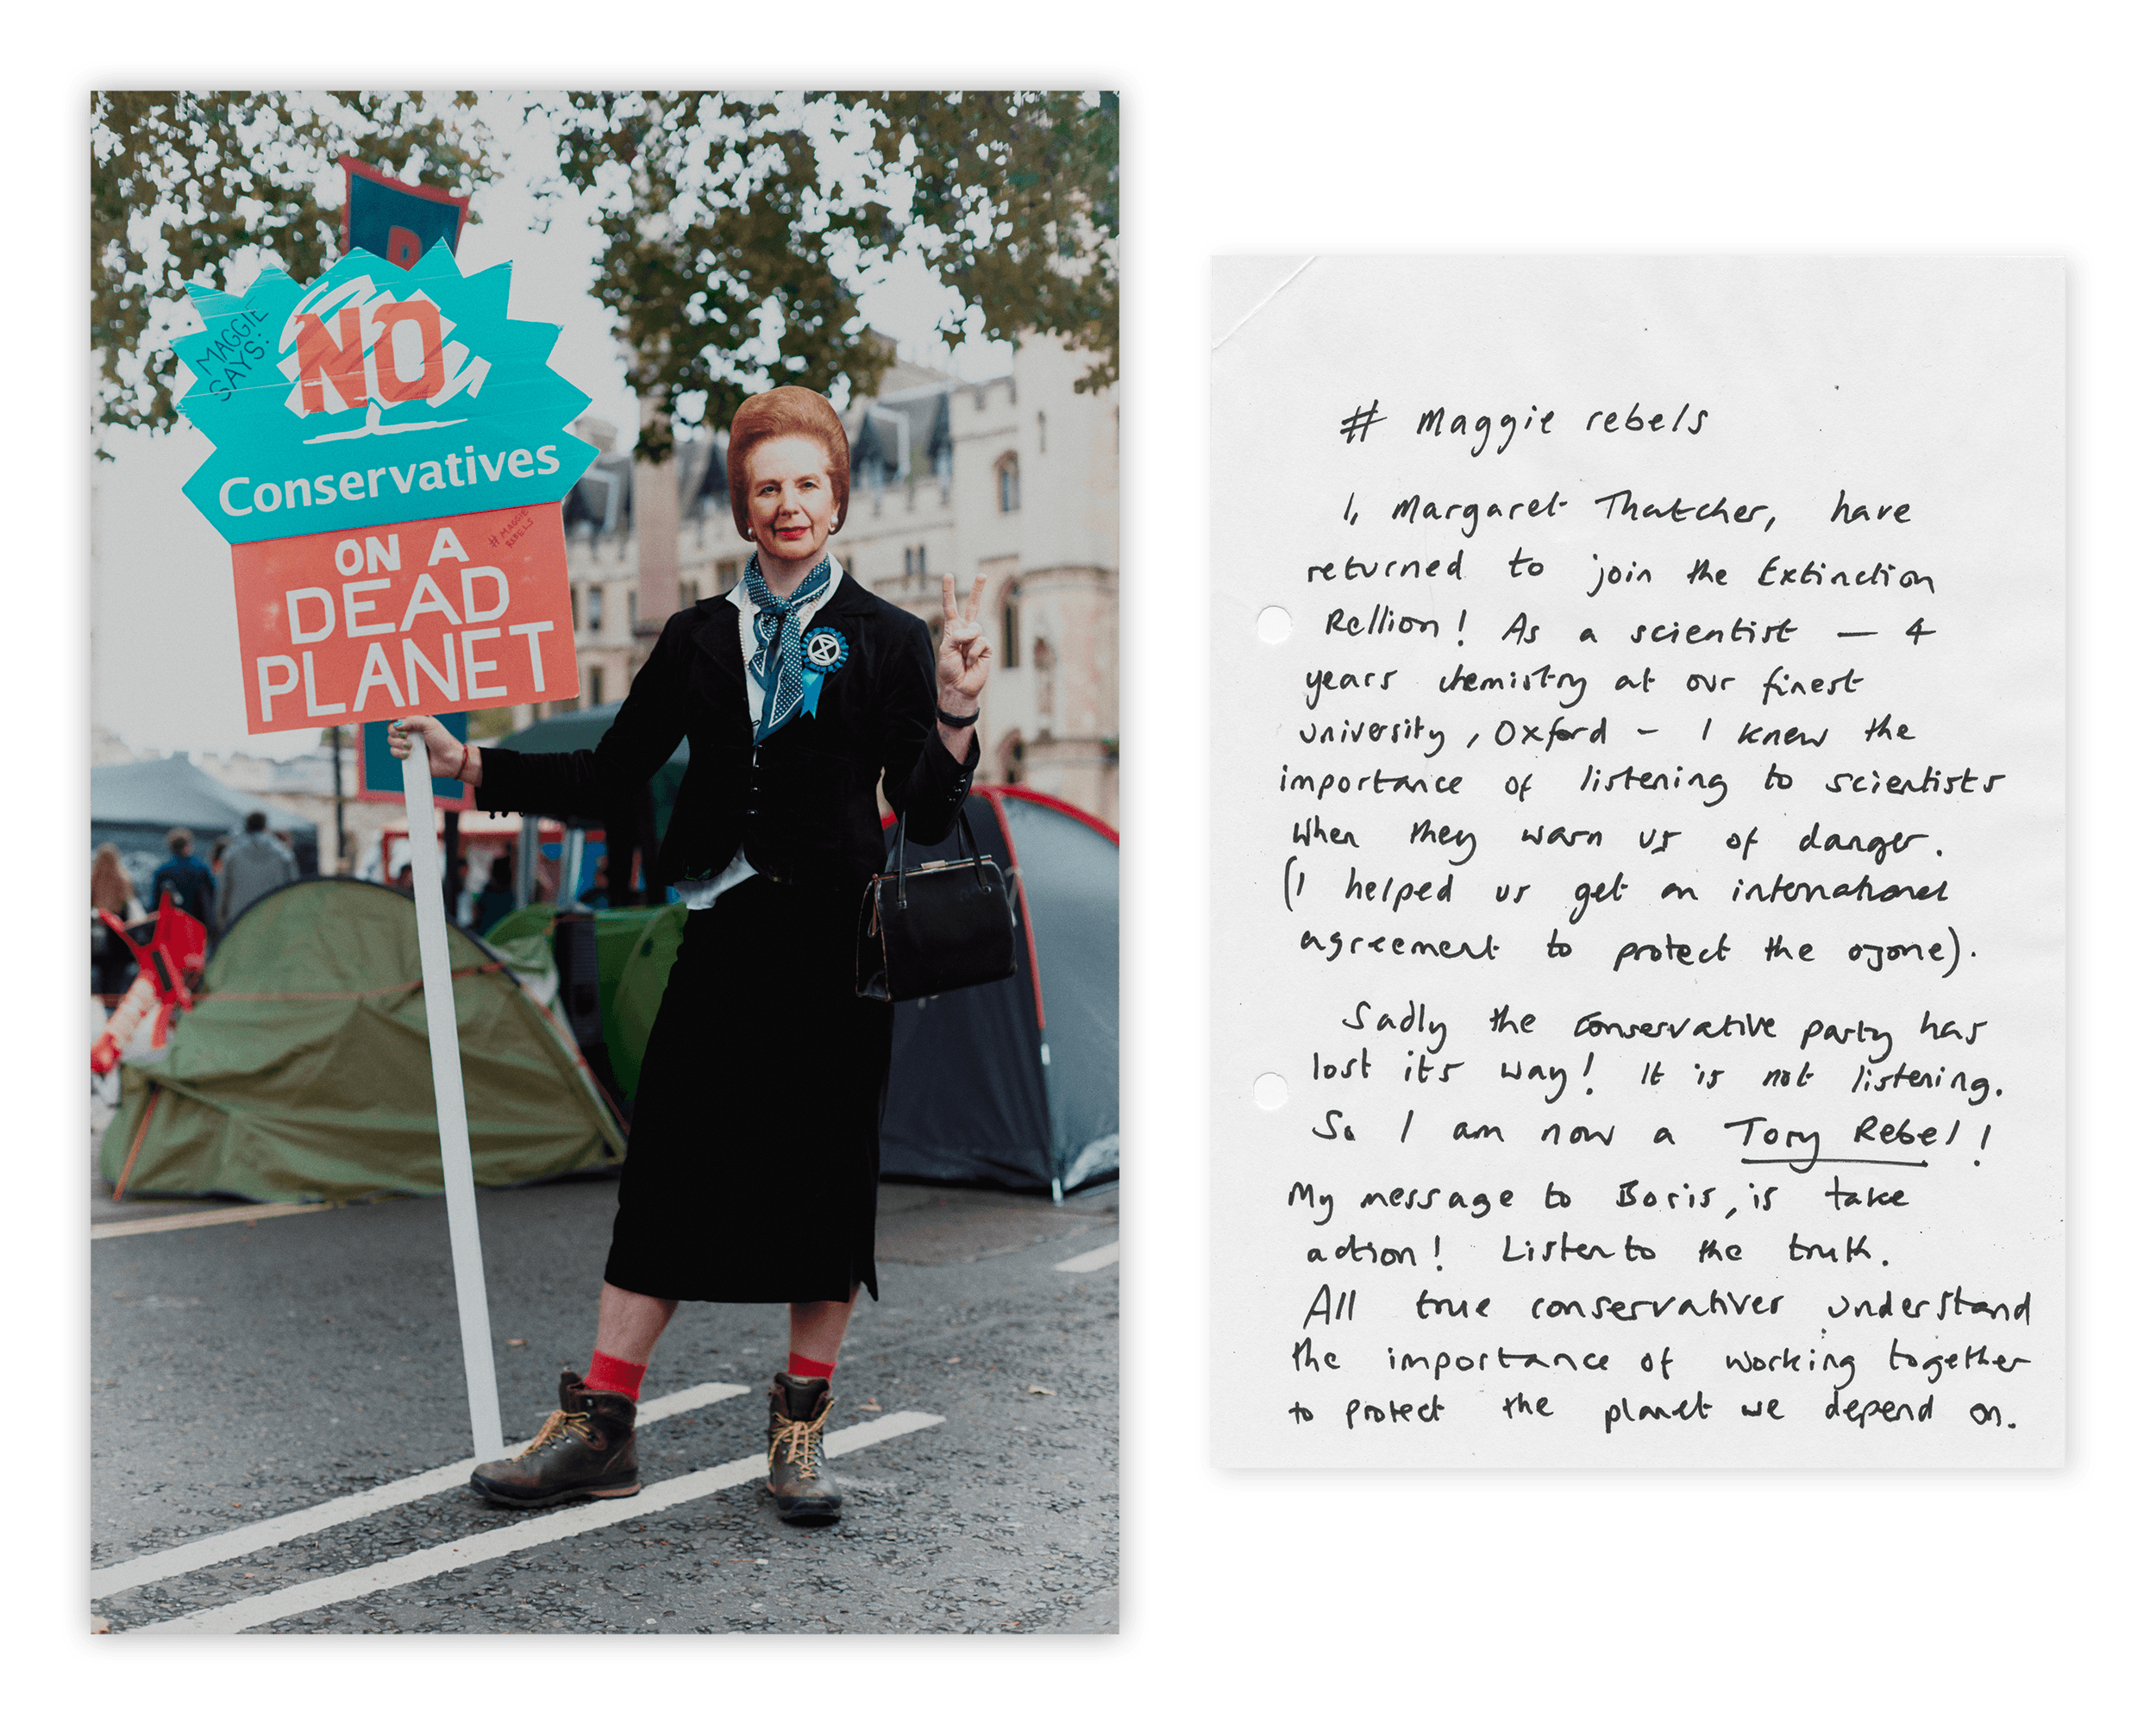 MAGGIE
SAYS:
NO
Conservatives
# MAGGIE
REBELS
ON A
DEAD
PLANET
# Maggie rebels
I, Margaret Thatcher, have
returned to join the Extinction
Rellion! As a scientist — 4
years chemistry at our finest
university, Oxford – I knew the
importance of listening to scientists
when they warn us of danger.
(I helped us get an international
agreement to protect the ozone).
Sadly the conservative party has
lost its way! It is not listening.
So I am now a Tory Rebel!
My message to Boris, is take
action! Listen to the truth.
All true conservatives understand
the importance of working together
to protect the planet we depend on.